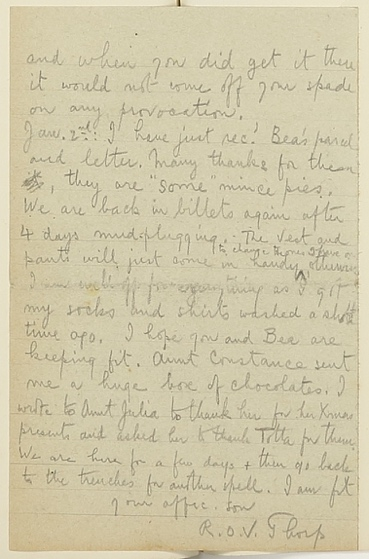 and when you did get it there
it would not come off your spade
on any provocation.
Jan. 2nd: I have just rec.d Bea's parcel
and letter. Many thanks for them
, they are "some" mince pies.
We are back in billets again after
4 days mudplugging. The vest and
to change the ones I have on
pants will just come in handy, otherwise
I am well off for everything as I got
my socks and shirts washed a short
time ago. I hope you and Bea are
keeping fit. Aunt Constance sent
me a huge box of chocolates. I
wrote to Aunt Julia to thank her for her Xmas
presents and asked her to thank Totta for them.
We are here for a few days + then go back
to the trenches for another spell. I am fit
your affec. son
R.O.V. Thorp